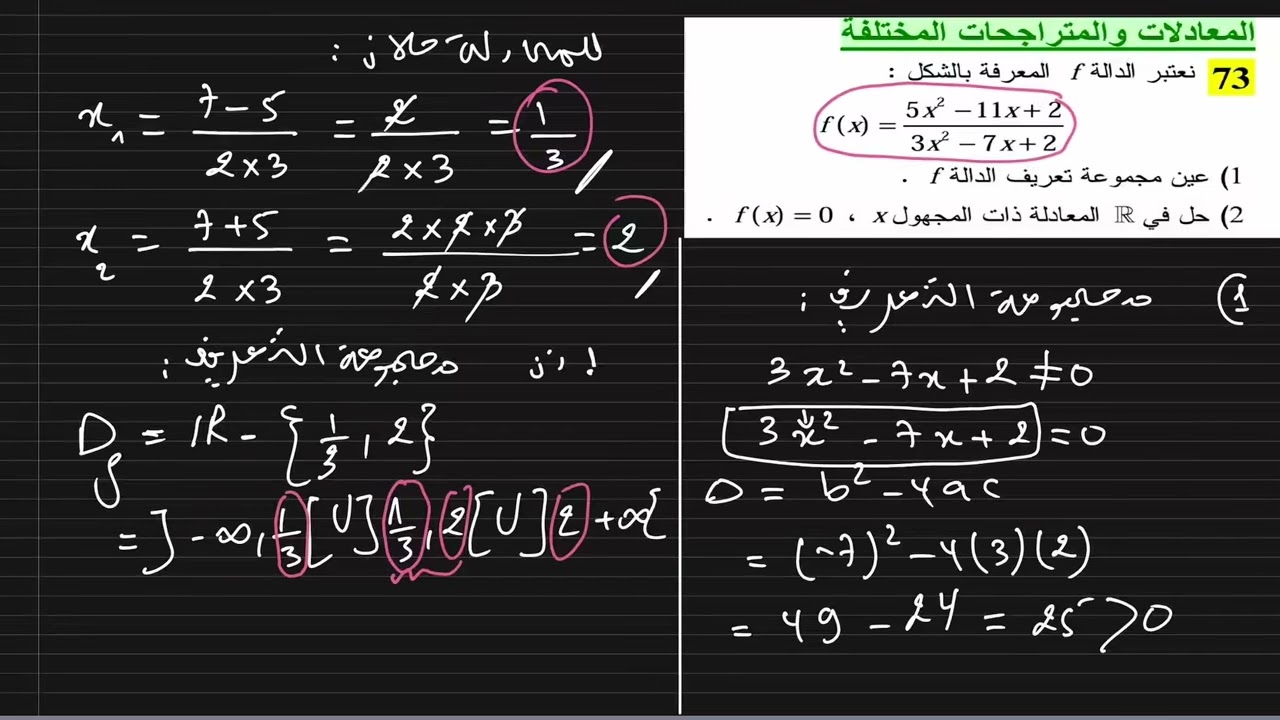 المعادلات والمتراجحات المختلفة
73 نعتبر الدالة f المعرفة بالشكل :
f(x) = (5x² − 11x + 2) / (3x² − 7x + 2)
1) عين مجموعة تعريف الدالة f .
2) حل في ℝ المعادلة ذات المجهول x ، f(x) = 0 .
1) مجموعة التعريف :
3x² − 7x + 2 ≠ 0
3x² − 7x + 2 = 0
Δ = b² − 4ac
= (−7)² − 4(3)(2)
= 49 − 24 = 25 > 0
للمعادلة حلان :
x₁ = (7 − 5) / (2 × 3) = 2 / (2 × 3) = 1/3
x₂ = (7 + 5) / (2 × 3) = (2 × 2 × 3) / (2 × 3) = 2
إذن مجموعة التعريف :
D_f = ℝ − {1/3, 2}
= ]−∞, 1/3[ U ]1/3, 2[ U ]2, +∞[